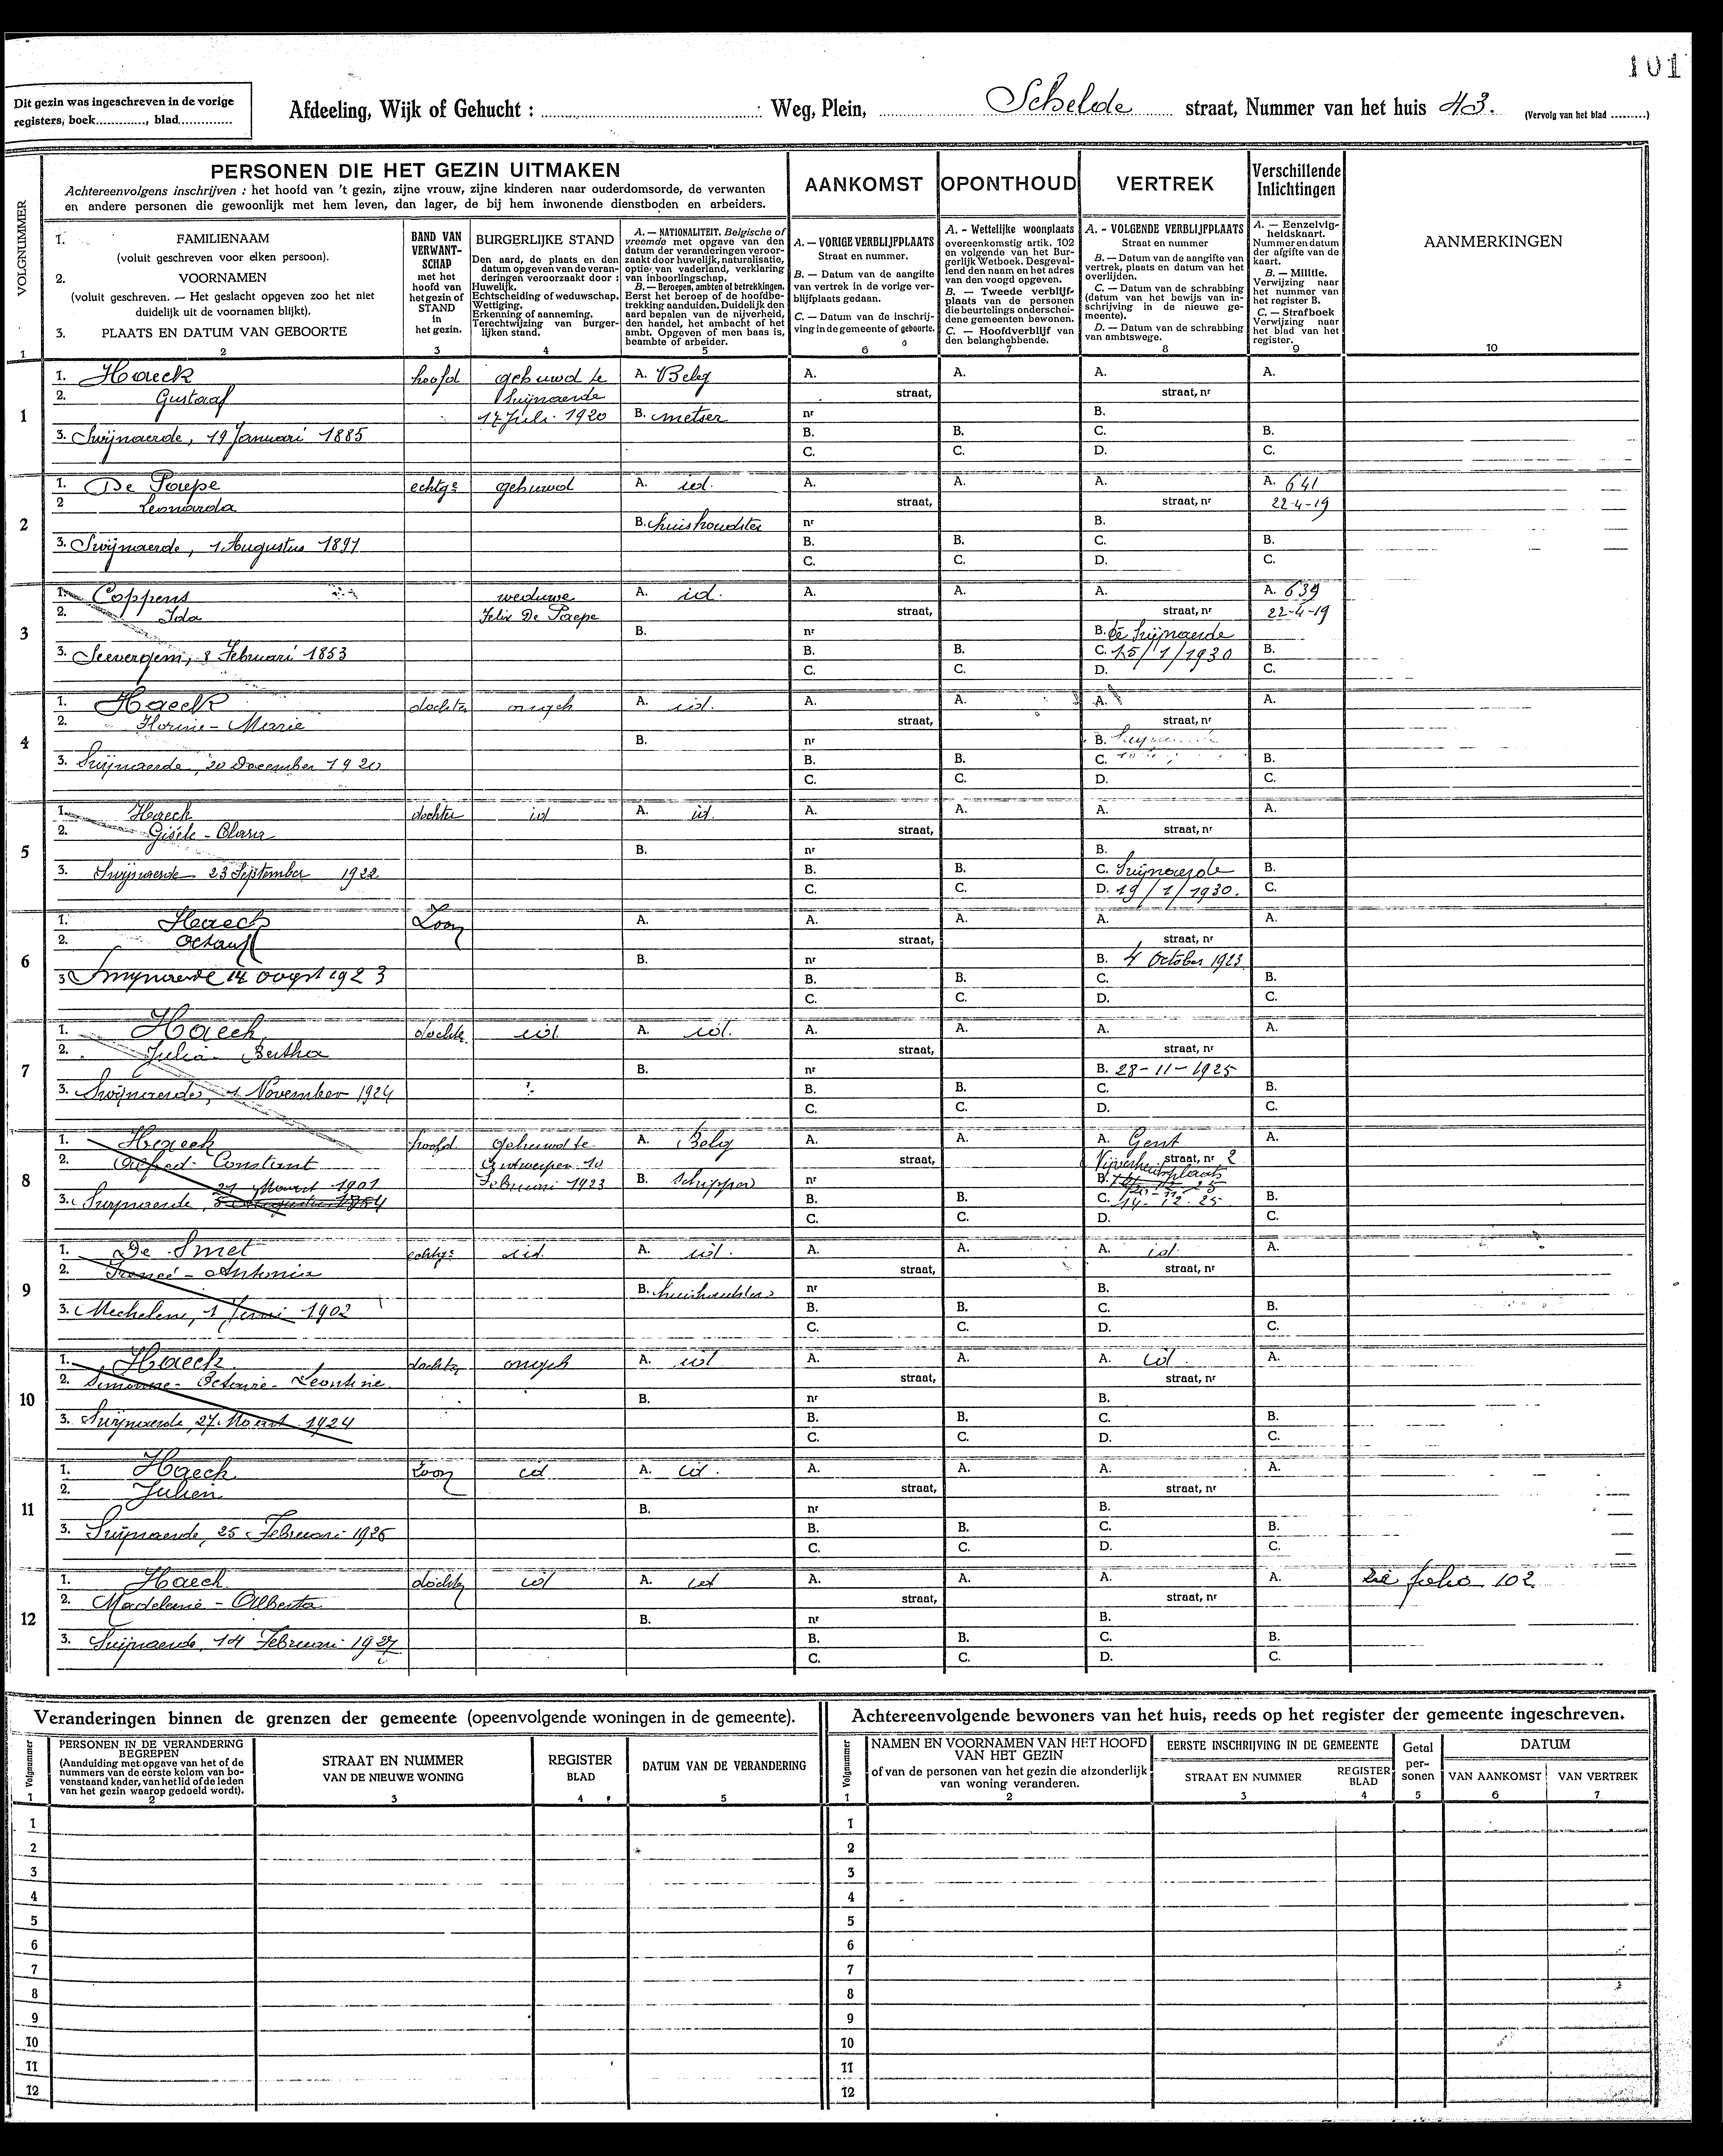 101
Dit gezin was ingeschreven in de vorige
registers, boek............, blad.............
Afdeeling, Wijk of Gehucht : Weg, Plein, Schelde straat, Nummer van het huis 43. (Vervolg van het blad .........)
VOLGNUMMER
PERSONEN DIE HET GEZIN UITMAKEN
Achtereenvolgens inschrijven : het hoofd van 't gezin, zijne vrouw, zijne kinderen naar ouderdomsorde, de verwanten
en andere personen die gewoonlijk met hem leven, dan lager, de bij hem inwonende dienstboden en arbeiders.
1. FAMILIENAAM
(voluit geschreven voor elken persoon).
2. VOORNAMEN
(voluit geschreven. — Het geslacht opgeven zoo het niet
duidelijk uit de voornamen blijkt).
3. PLAATS EN DATUM VAN GEBOORTE
BAND VAN
VERWANT-
SCHAP
met het
hoofd van
het gezin of
STAND
in
het gezin.
BURGERLIJKE STAND
Den aard, de plaats en den
datum opgeven van de veran-
deringen veroorzaakt door :
Huwelijk.
Echtscheiding of weduwschap.
Wettiging.
Erkenning of aanneming.
Terechtwijzing van burger-
lijken stand.
A. — NATIONALITEIT. Belgische of
vreemde met opgave van den
datum der veranderingen veroor-
zaakt door huwelijk, naturalisatie,
optie van vaderland, verklaring
van inboorlingschap.
B. — Beroepen, ambten of betrekkingen.
Eerst het beroep of de hoofdbe-
trekking aanduiden. Duidelijk den
aard bepalen van de nijverheid,
den handel, het ambacht of het
ambt. Opgeven of men baas is,
beambte of arbeider.
AANKOMST
A. — VORIGE VERBLIJFPLAATS
Straat en nummer.
B. — Datum van de aangifte
van vertrek in de vorige ver-
blijfplaats gedaan.
C. — Datum van de inschrij-
ving in de gemeente of geboorte.
OPONTHOUD
A. - Wettelijke woonplaats
overeenkomstig artik. 102
en volgende van het Bur-
gerlijk Wetboek. Desgeval-
lend den naam en het adres
van den voogd opgeven.
B. — Tweede verblijf-
plaats van de personen
die beurtelings onderschei-
dene gemeenten bewonen.
C. — Hoofdverblijf van
den belanghebbende.
VERTREK
A. - VOLGENDE VERBLIJFPLAATS
Straat en nummer
B. — Datum van de aangifte van
vertrek, plaats en datum van het
overlijden.
C. — Datum van de schrabbing
(datum van het bewijs van in-
schrijving in de nieuwe ge-
meente).
D. — Datum van de schrabbing
van ambtswege.
Verschillende
Inlichtingen
A. — Eenzelvig-
heidskaart.
Nummer en datum
der afgifte van de
kaart.
B. — Militie.
Verwijzing naar
het nummer van
het register B.
C. — Strafboek
Verwijzing naar
het blad van het
register.
AANMERKINGEN
1 2 3 4 5 6 7 8 9 10
1. Haeck hoofd gehuwd te A. Belg A. A. A. A.
2. Gustaaf Swijnaerde straat, straat, nr
1 17 Juli 1920 B. metser nr B.
3. Swijnaerde, 19 Januari 1885 B. B. C. B.
C. C. D. C.
1. De Paepe echtge gehuwd A. id. A. A. A. A. 641
2 Leonarda straat, straat, nr 22-4-19
2 B. huishoudster nr B.
3. Swijnaerde, 1 Augustus 1891 B. B. C. B.
C. C. D. C.
1. Coppens weduwe A. id. A. A. A. A. 639
2. Ida Felix De Paepe straat, straat, nr 22-4-19
3 B. nr B. te Swijnaerde
3. Seevergem, 8 Februari 1853 B. B. C. 15/1/1930 B.
C. C. D. C.
1. Haeck dochter ongeh A. id. A. A. A. A.
2. Florine - Marie straat, straat, nr
4 B. nr B.
3. Swijnaerde, 20 December 1920 B. B. C. B.
C. C. D. C.
1. Haeck dochter id A. id. A. A. A. A.
2. Gisèle - Clara straat, straat, nr
5 B. nr B.
3. Swijnaerde 23 September 1922 B. B. C. Swijnaerde B.
C. C. D. 19/1/1930. C.
1. Haeck Zoon A. A. A. A. A.
2. Octaaf straat, straat, nr
6 B. nr B. 4 October 1923
3 Swijnaerde 14 oogst 1923 B. B. C. B.
C. C. D. C.
1. Haeck dochter id. A. id. A. A. A. A.
2. Julia - Bertha straat, straat, nr
7 B. nr B. 28-11-1925
3. Swijnaerde, 1 November 1924 B. B. C. B.
C. C. D. C.
1. Haeck hoofd gehuwd te A. Belg A. A. A. Gent A.
2. Alfred - Constant Antwerpen 10 straat, straat, nr 2
8 21 Maart 1901 Februari 1923 B. schipper nr B.
3. Swijnaerde, B. B. C. 14-12-25 B.
C. C. D. C.
1. De Smet echtge id. A. id. A. A. A. id. A.
2. Irenée - Antonia straat, straat, nr
9 B. huishoudster nr B.
3. Mechelen, 1 Juni 1902 B. B. C. B.
C. C. D. C.
1. Haeck dochter ongeh A. id A. A. A. id. A.
2. Simonne - Octavie - Leontine straat, straat, nr
10 B. nr B.
3. Swijnaerde, 27 Maart 1924 B. B. C. B.
C. C. D. C.
1. Haeck Zoon id A. id. A. A. A. A.
2. Julien straat, straat, nr
11 B. nr B.
3. Swijnaerde, 25 Februari 1926 B. B. C. B.
C. C. D. C.
1. Haeck dochter id A. id A. A. A. A. zie folio 102
2. Madeleine - Alberta straat, straat, nr
12 B. nr B.
3. Swijnaerde, 14 Februari 1927 B. B. C. B.
C. C. D. C.
Veranderingen binnen de grenzen der gemeente (opeenvolgende woningen in de gemeente).
Volgnummer
PERSONEN IN DE VERANDERING
BEGREPEN
(Aanduiding met opgave van het of de
nummers van de eerste kolom van bo-
venstaand kader, van het lid of de leden
van het gezin waarop gedoeld wordt).
STRAAT EN NUMMER
VAN DE NIEUWE WONING
REGISTER
BLAD
DATUM VAN DE VERANDERING
1 2 3 4 5
1
2
3
4
5
6
7
8
9
10
11
12
Achtereenvolgende bewoners van het huis, reeds op het register der gemeente ingeschreven.
Volgnummer
NAMEN EN VOORNAMEN VAN HET HOOFD
VAN HET GEZIN
of van de personen van het gezin die afzonderlijk
van woning veranderen.
EERSTE INSCHRIJVING IN DE GEMEENTE
STRAAT EN NUMMER
REGISTER
BLAD
Getal
per-
sonen
DATUM
VAN AANKOMST
VAN VERTREK
1 2 3 4 5 6 7
1
2
3
4
5
6
7
8
9
10
11
12